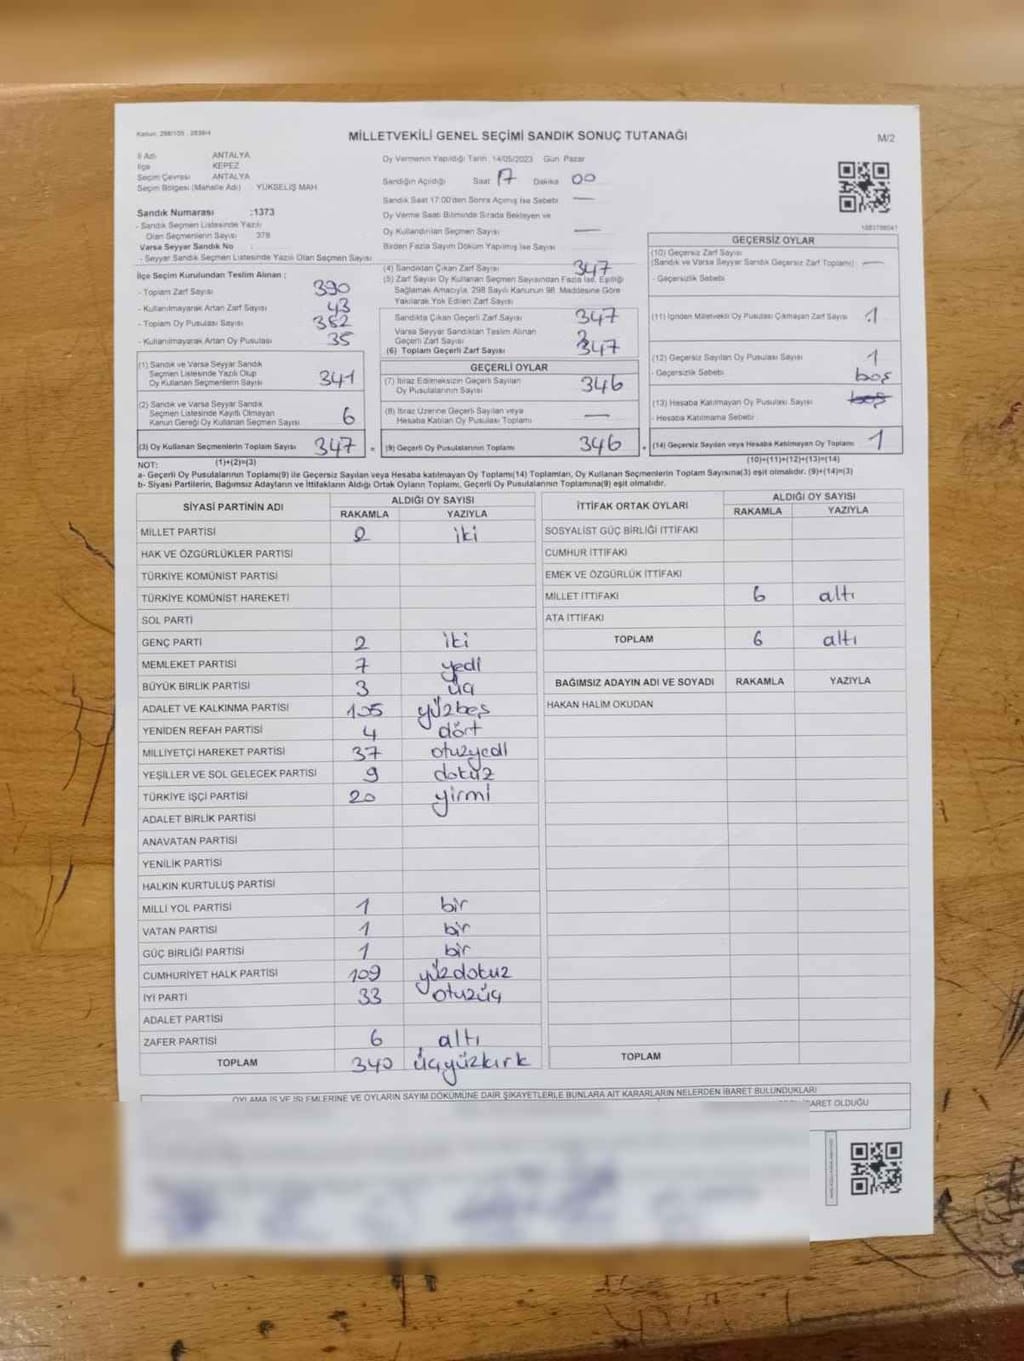 Kanun: 298/105 , 2839/4
MİLLETVEKİLİ GENEL SEÇİMİ SANDIK SONUÇ TUTANAĞI
M/2
İl Adı ANTALYA
İlçe KEPEZ
Seçim Çevresi ANTALYA
Seçim Bölgesi (Mahalle Adı) YÜKSELİŞ MAH.
Oy Vermenin Yapıldığı Tarih: 14/05/2023 Gün: Pazar
Sandığın Açıldığı Saat 17 Dakika 00
Sandık Saat 17:00'den Sonra Açılmış İse Sebebi —
Oy Verme Saati Bitiminde Sırada Bekleyen ve
Oy Kullandırılan Seçmen Sayısı —
Birden Fazla Sayım Döküm Yapılmış İse Sayısı
Sandık Numarası :1373
- Sandık Seçmen Listesinde Yazılı
Olan Seçmenlerin Sayısı 378
Varsa Seyyar Sandık No
- Seyyar Sandık Seçmen Listesinde Yazılı Olan Seçmen Sayısı
İlçe Seçim Kurulundan Teslim Alınan ;
- Toplam Zarf Sayısı 390
- Kullanılmayarak Artan Zarf Sayısı 43
- Toplam Oy Pusulası Sayısı 382
- Kullanılmayarak Artan Oy Pusulası 35
(1) Sandık ve Varsa Seyyar Sandık
Seçmen Listesinde Yazılı Olup
Oy Kullanan Seçmenlerin Sayısı 341
(2) Sandık ve Varsa Seyyar Sandık
Seçmen Listesinde Kayıtlı Olmayan
Kanun Gereği Oy Kullanan Seçmen Sayısı 6
(3) Oy Kullanan Seçmenlerin Toplam Sayısı 347
(4) Sandıktan Çıkan Zarf Sayısı 347
(5) Zarf Sayısı Oy Kullanan Seçmen Sayısından Fazla İse, Eşitliği
Sağlamak Amacıyla, 298 Sayılı Kanunun 98. Maddesine Göre
Yakılarak Yok Edilen Zarf Sayısı
Sandıkta Çıkan Geçerli Zarf Sayısı 347
Varsa Seyyar Sandıktan Teslim Alınan
Geçerli Zarf Sayısı
(6) Toplam Geçerli Zarf Sayısı 347
GEÇERLİ OYLAR
(7) İtiraz Edilmeksizin Geçerli Sayılan
Oy Pusulalarının Sayısı 346
(8) İtiraz Üzerine Geçerli Sayılan veya
Hesaba Katılan Oy Pusulası Toplamı —
= (9) Geçerli Oy Pusulalarının Toplamı 346
GEÇERSİZ OYLAR
(10) Geçersiz Zarf Sayısı
(Sandık ve Varsa Seyyar Sandık Geçersiz Zarf Toplamı) —
- Geçersizlik Sebebi
(11) İçinden Milletvekili Oy Pusulası Çıkmayan Zarf Sayısı 1
(12) Geçersiz Sayılan Oy Pusulası Sayısı 1
- Geçersizlik Sebebi boş
(13) Hesaba Katılmayan Oy Pusulası Sayısı boş
- Hesaba Katılmama Sebebi
+ (14) Geçersiz Sayılan veya Hesaba Katılmayan Oy Toplamı 1
NOT: (1)+(2)=(3) (10)+(11)+(12)+(13)=(14)
a- Geçerli Oy Pusulalarının Toplamı(9) ile Geçersiz Sayılan veya Hesaba katılmayan Oy Toplamı(14) Toplamları, Oy Kullanan Seçmenlerin Toplam Sayısına(3) eşit olmalıdır. (9)+(14)=(3)
b- Siyasi Partilerin, Bağımsız Adayların ve İttifakların Aldığı Ortak Oyların Toplamı, Geçerli Oy Pusulalarının Toplamına(9) eşit olmalıdır.
SİYASİ PARTİNİN ADI ALDIĞI OY SAYISI
RAKAMLA YAZIYLA
MİLLET PARTİSİ 2 iki
HAK VE ÖZGÜRLÜKLER PARTİSİ
TÜRKİYE KOMÜNİST PARTİSİ
TÜRKİYE KOMÜNİST HAREKETİ
SOL PARTİ
GENÇ PARTİ 2 iki
MEMLEKET PARTİSİ 7 yedi
BÜYÜK BİRLİK PARTİSİ 3 üç
ADALET VE KALKINMA PARTİSİ 105 yüzbeş
YENİDEN REFAH PARTİSİ 4 dört
MİLLİYETÇİ HAREKET PARTİSİ 37 otuzyedi
YEŞİLLER VE SOL GELECEK PARTİSİ 9 dokuz
TÜRKİYE İŞÇİ PARTİSİ 20 yirmi
ADALET BİRLİK PARTİSİ
ANAVATAN PARTİSİ
YENİLİK PARTİSİ
HALKIN KURTULUŞ PARTİSİ
MİLLİ YOL PARTİSİ 1 bir
VATAN PARTİSİ 1 bir
GÜÇ BİRLİĞİ PARTİSİ 1 bir
CUMHURİYET HALK PARTİSİ 109 yüzdokuz
İYİ PARTİ 33 otuzüç
ADALET PARTİSİ
ZAFER PARTİSİ 6 altı
TOPLAM 340 üçyüzkırk
İTTİFAK ORTAK OYLARI ALDIĞI OY SAYISI
RAKAMLA YAZIYLA
SOSYALİST GÜÇ BİRLİĞİ İTTİFAKI
CUMHUR İTTİFAKI
EMEK VE ÖZGÜRLÜK İTTİFAKI
MİLLET İTTİFAKI 6 altı
ATA İTTİFAKI
TOPLAM 6 altı
BAĞIMSIZ ADAYIN ADI VE SOYADI RAKAMLA YAZIYLA
HAKAN HALİM OKUDAN
TOPLAM
OYLAMA İŞ VE İŞLEMLERİNE VE OYLARIN SAYIM DÖKÜMÜNE DAİR ŞİKAYETLERLE BUNLARA AİT KARARLARIN NELERDEN İBARET BULUNDUKLARI
İBARET OLDUĞU